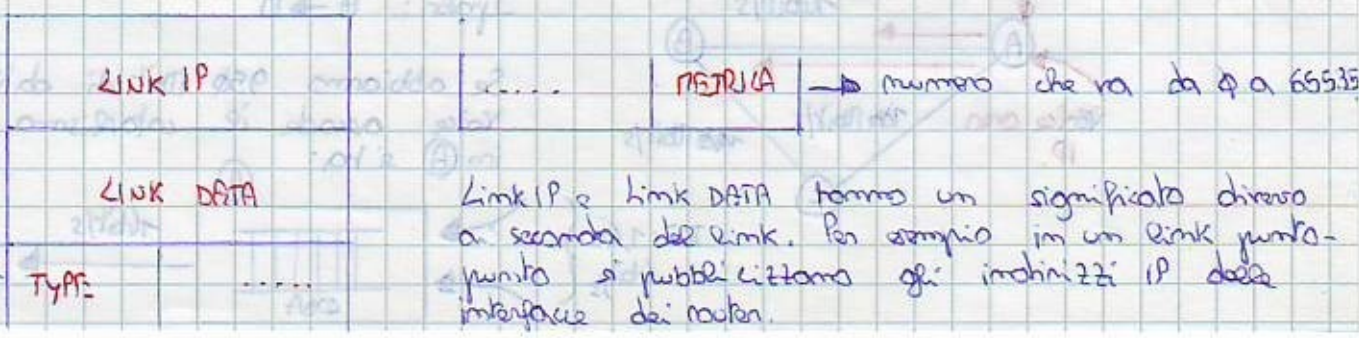 LINK IP
..... METRICA → numero che va da 0 a 65535
LINK DATA
Link IP e Link DATA hanno un significato diverso
a seconda del link. Per esempio in un link punto-
TYPE .....
punto si pubblicizzano gli indirizzi IP delle
interfacce dei router.